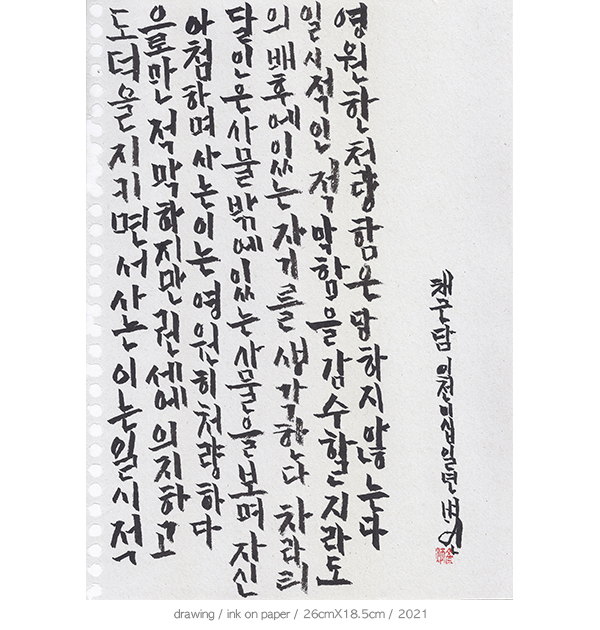 도덕을 지키면서 사는 이는 일시적
으로만 적막하지만 권세에 의지하고
아첨하며 사는 이는 영원히 처량하다
달인은 사물 밖에 있는 사물을 보며 자신
의 배후에 있는 자기를 생각한다 차라리
일시적인 적막함을 감수할지라도
영원한 처량함은 당하지 않는다
채근담 이천이십일년
drawing / ink on paper / 26cmX18.5cm / 2021